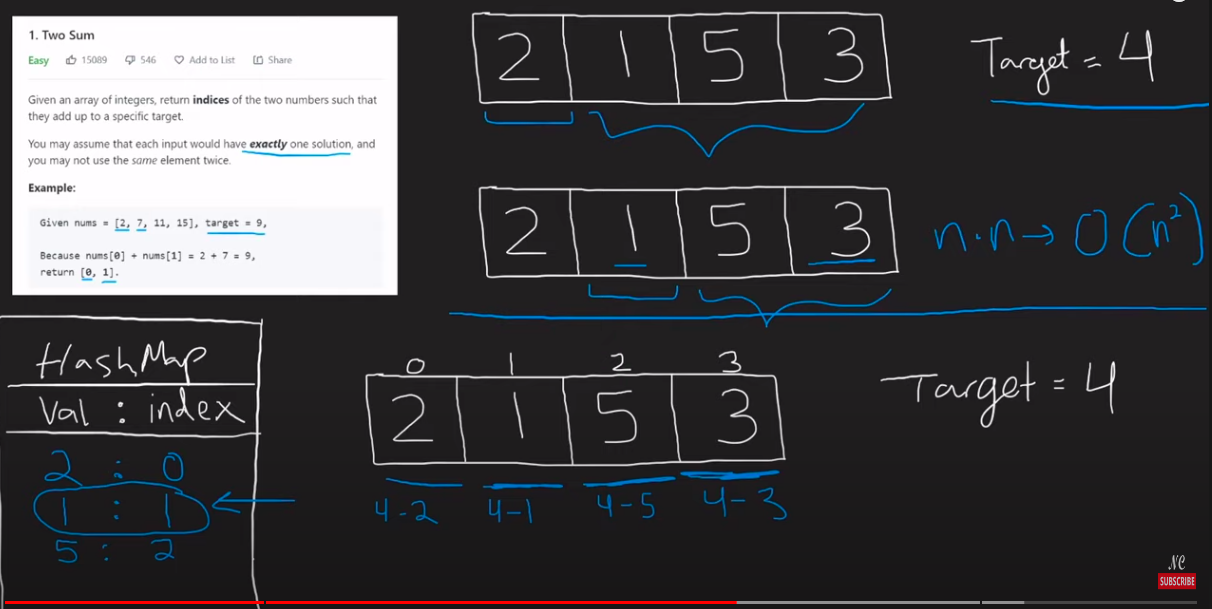 1. Two Sum
Easy 15089 546 Add to List Share
Given an array of integers, return indices of the two numbers such that
they add up to a specific target.
You may assume that each input would have exactly one solution, and
you may not use the same element twice.
Example:
Given nums = [2, 7, 11, 15], target = 9,
Because nums[0] + nums[1] = 2 + 7 = 9,
return [0, 1].
2 1 5 3
Target = 4
2 1 5 3
n·n→ O(n²)
HashMap
Val : index
2 : 0
1 : 1
5 : 2
0 1 2 3
2 1 5 3
4-2 4-1 4-5 4-3
Target = 4
NC
SUBSCRIBE